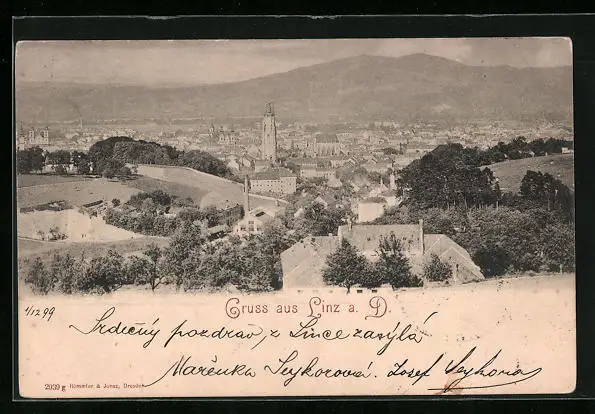 Gruss aus Linz a. D.
1/12 99
Srdečný pozdrav z Lince zasýlá
Mařenka Seykorová. Josef Seykora
2039 g Römmler & Jonas, Dresden